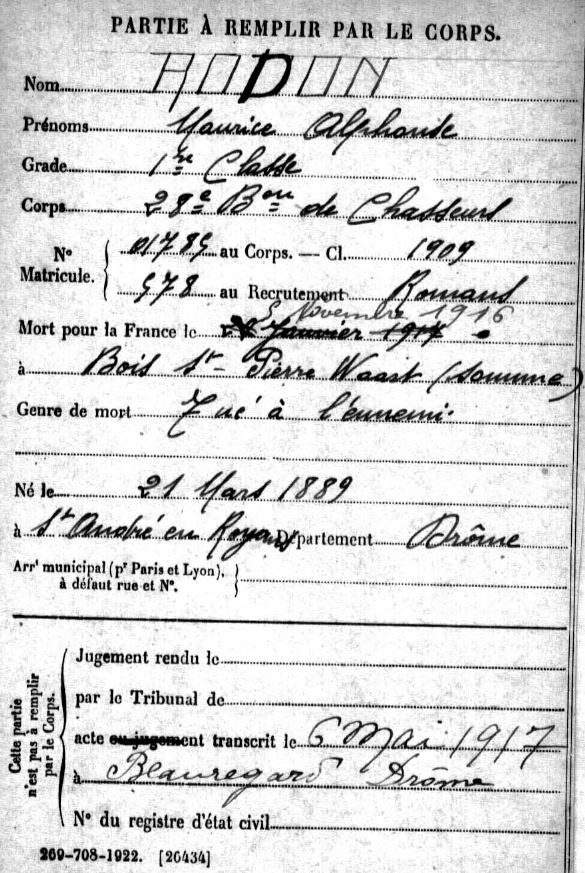 PARTIE À REMPLIR PAR LE CORPS.
Nom RODON
Prénoms Maurice Alphonse
Grade 1re Classe
Corps 28e Bon de Chasseurs
No Matricule. 01785 au Corps. — Cl. 1909
578 au Recrutement Romans
5 Novembre 1916
Mort pour la France le Janvier 1917
à Bois St Pierre Waast (Somme)
Genre de mort Tué à l'ennemi
Né le 21 Mars 1889
à St André en Royans Département Drôme
Arrt municipal (pr Paris et Lyon),
à défaut rue et No.
Cette partie n'est pas à remplir par le Corps.
Jugement rendu le
par le Tribunal de
acte ou jugement transcrit le 6 Mai 1917
à Beauregard Drôme
No du registre d'état civil
269-708-1922. [26434]